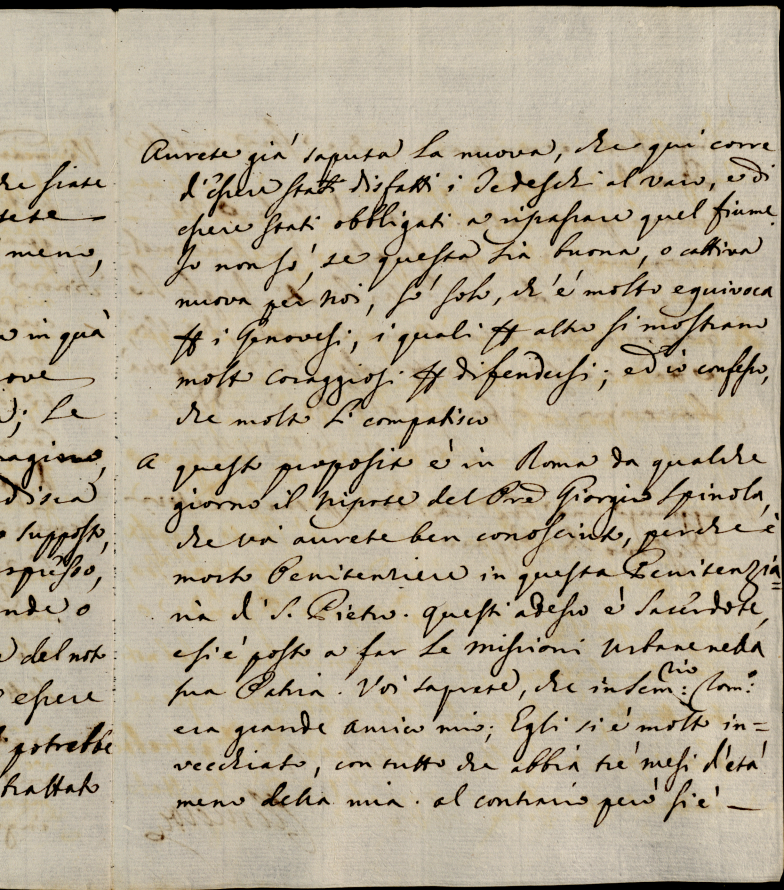 che siate
tete
meno,
in quà
ove
; Le
magino,
disca
supposto,
espresso,
nde o
del noto
essere
potrebbe
trattato
Aurete già saputa la nuova, che quì corre
d'essere stati disfatti i Tedeschi al varo, e di
essere stati obbligati a ripassare quel fiume.
Io non sò, se questa sia buona, o cattiva
nuova per noi, sò solo, ch'è molto equivoca
ꝑ i Genovesi, i quali ꝑ altro si mostrano
molto coraggiosi ꝑ difendersi; ed io confesso,
che molto li compatisco
A questo proposito è in Roma da qualche
giorno il nipote del Pre Giorgio Spinola,
che voi aurete ben conosciuto, perche è
morto Penitenziere in questa Penitenzia=
ria di S. Pietro. questi adesso è Sacerdote,
e si è posto a far le missioni urbane nella
sua Patria. Voi saprete, che in Sem:rio Rom:o
era grande amico mio; Egli si è molto in=
vecchiato, con tutto che abbia tré mesi d'età
meno della mia. al contrario però si è